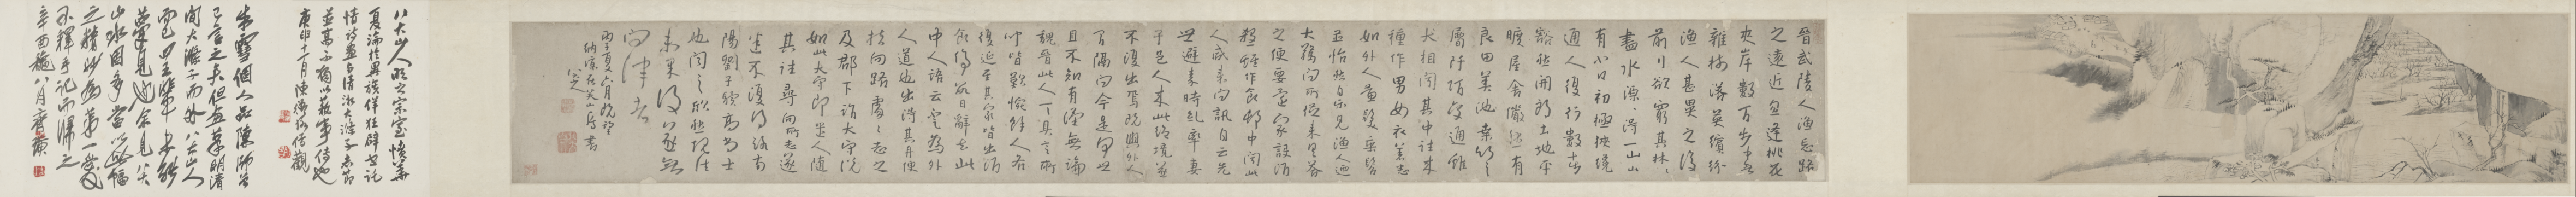 晉武陵人漁忘路
之遠近忽逢桃花
夾岸數百步中無
雜樹落英繽紛
漁人甚異之復
前行欲窮其林林
盡水源得一山山
有小口初極狹纔
通人復行數十步
豁然開朗土地平
曠屋舍儼然有
良田美池桑竹之
屬阡陌交通雞
犬相聞其中往來
種作男女衣著悉
如外人黃髮垂髫
並怡然自樂見漁人迺
大驚問所從來具答
之便要還家設酒
殺雞作食邨中聞此
人咸來問訊自云先
世避秦時亂率妻
子邑人來此絕境遂
不復出焉既與外人
間隔問今是何世
且不知有漢無論
魏晉此人一一具言所
聞皆歎惋餘人各
復延至其家皆出酒
食停數日辭去此
中人語云不足為外
人道也出得其舟便
扶向路處處志之
及郡下詣太守說
如此太守即遣人隨
其往尋向所志遂
迷不復得路南
陽劉子驥高尚士
也聞之欣然規往
未果後遂無
問津者
丙子夏六月既望
納涼在芙山房書
八大山人明之宗室憤華
夏淪於異族佯狂肆世託
情詩畫與清湘大滌子志節
並高不獨以藝事傳也
十一月陳
朱雪個人品陳師曾
已言之矣但畫筆明清
間大滌子而外八大山人
而已四王輩未能
夢見也余見八大
山水固多當以此幅
之精妙為第一愛玩
不釋手記而歸之
辛酉秋八月齊璜